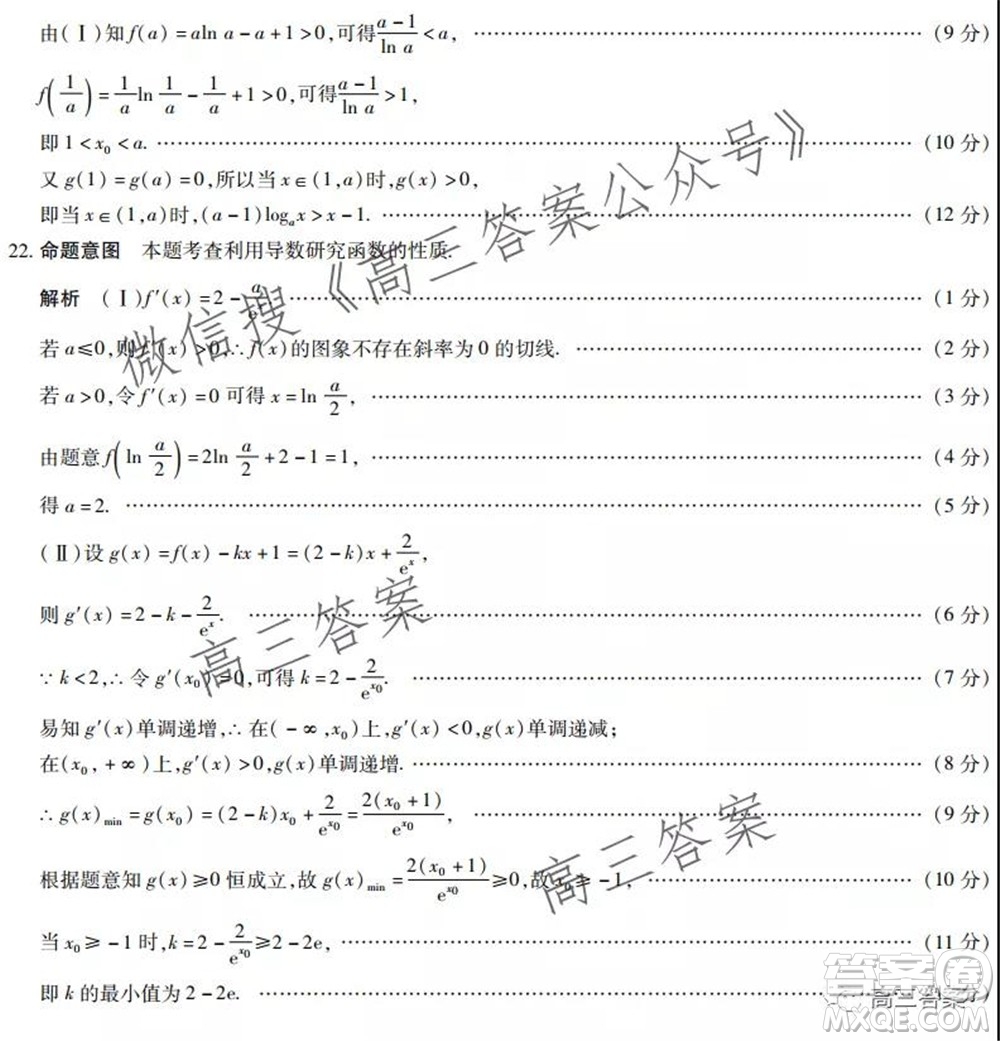 由(Ⅰ)知f(a)=aln a-a+1>0,可得(a-1)/(ln a)<a, ……(9 分)
f(1/a)=(1/a)ln(1/a)-1/a+1>0,可得(a-1)/(ln a)>1,
即 1<x₀<a. ……(10 分)
又 g(1)=g(a)=0,所以当 x∈(1,a)时,g(x)>0,
即当 x∈(1,a)时,(a-1)logₐx>x-1. ……(12 分)
22. 命题意图 本题考查利用导数研究函数的性质.
解析 (Ⅰ)f′(x)=2-a/eˣ. ……(1 分)
若 a≤0,则f′(x)>0,∴f(x)的图象不存在斜率为 0 的切线. ……(2 分)
若 a>0,令f′(x)=0 可得 x=ln a/2, ……(3 分)
由题意f(ln a/2)=2ln a/2+2-1=1, ……(4 分)
得 a=2. ……(5 分)
(Ⅱ)设 g(x)=f(x)-kx+1=(2-k)x+2/eˣ,
则 g′(x)=2-k-2/eˣ. ……(6 分)
∵k<2,∴令 g′(x₀)=0,可得 k=2-2/e^x₀. ……(7 分)
易知 g′(x)单调递增,∴在(-∞,x₀)上,g′(x)<0,g(x)单调递减;
在(x₀,+∞)上,g′(x)>0,g(x)单调递增. ……(8 分)
∴g(x)min=g(x₀)=(2-k)x₀+2/e^x₀=2(x₀+1)/e^x₀, ……(9 分)
根据题意知 g(x)≥0 恒成立,故 g(x)min=2(x₀+1)/e^x₀≥0,故 x₀≥-1, ……(10 分)
当 x₀≥-1 时,k=2-2/e^x₀≥2-2e, ……(11 分)
即 k 的最小值为 2-2e. ……
微信搜《高三答案公众号》
高三答案
高三答案
答案卷
高三答案
MXQE.COM